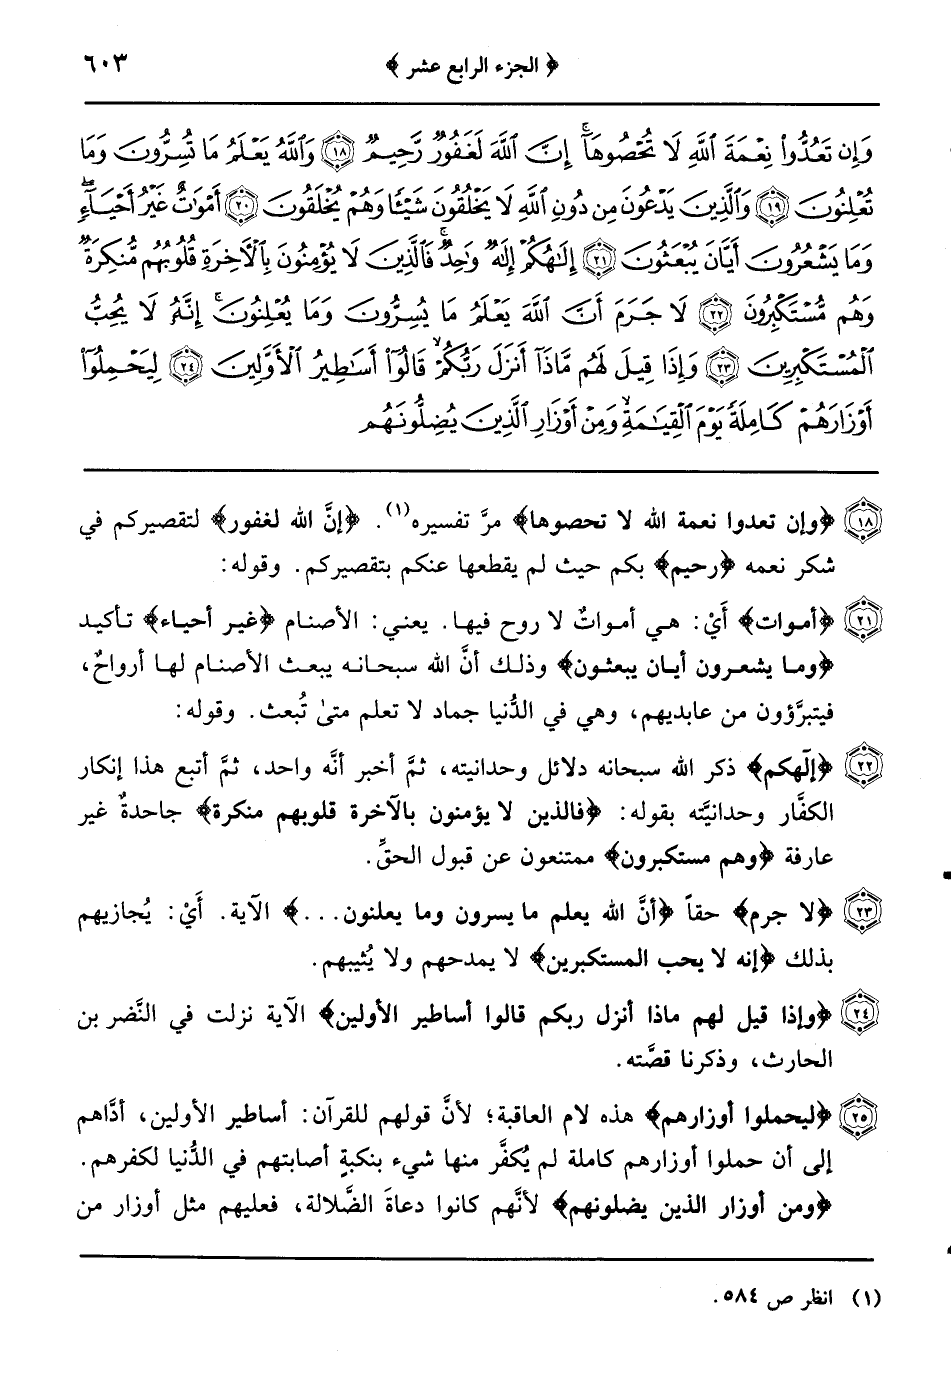 ﴿ الجزء الرابع عشر ﴾ ٦٠٣
وَإِن تَعُدُّوا۟ نِعْمَةَ ٱللَّهِ لَا تُحْصُوهَآ ۗ إِنَّ ٱللَّهَ لَغَفُورٌ رَّحِيمٌ ١٨ وَٱللَّهُ يَعْلَمُ مَا تُسِرُّونَ وَمَا
تُعْلِنُونَ ١٩ وَٱلَّذِينَ يَدْعُونَ مِن دُونِ ٱللَّهِ لَا يَخْلُقُونَ شَيْـًٔا وَهُمْ يُخْلَقُونَ ٢٠ أَمْوَٰتٌ غَيْرُ أَحْيَآءٍ ۖ
وَمَا يَشْعُرُونَ أَيَّانَ يُبْعَثُونَ ٢١ إِلَٰهُكُمْ إِلَٰهٌ وَٰحِدٌ ۚ فَٱلَّذِينَ لَا يُؤْمِنُونَ بِٱلْأَخِرَةِ قُلُوبُهُم مُّنكِرَةٌ
وَهُم مُّسْتَكْبِرُونَ ٢٢ لَا جَرَمَ أَنَّ ٱللَّهَ يَعْلَمُ مَا يُسِرُّونَ وَمَا يُعْلِنُونَ ۚ إِنَّهُۥ لَا يُحِبُّ
ٱلْمُسْتَكْبِرِينَ ٢٣ وَإِذَا قِيلَ لَهُم مَّاذَآ أَنزَلَ رَبُّكُمْ ۙ قَالُوٓا۟ أَسَٰطِيرُ ٱلْأَوَّلِينَ ٢٤ لِيَحْمِلُوٓا۟
أَوْزَارَهُمْ كَامِلَةً يَوْمَ ٱلْقِيَٰمَةِ ۙ وَمِنْ أَوْزَارِ ٱلَّذِينَ يُضِلُّونَهُم
١٨ ﴿وإن تعدوا نعمة الله لا تحصوها﴾ مرَّ تفسيره(١). ﴿إنَّ الله لغفور﴾ لتقصيركم في
شكر نعمه ﴿رحيم﴾ بكم حيث لم يقطعها عنكم بتقصيركم. وقوله:
٢١ ﴿أموات﴾ أَيْ: هي أمواتٌ لا روح فيها. يعني: الأصنام ﴿غير أحياء﴾ تأكيد
﴿وما يشعرون أيان يبعثون﴾ وذلك أنَّ الله سبحانه يبعث الأصنام لها أرواحٌ،
فيتبرَّؤون من عابديهم، وهي في الدُّنيا جماد لا تعلم متىٰ تُبعث. وقوله:
٢٢ ﴿إلٰهكم﴾ ذكر الله سبحانه دلائل وحدانيته، ثمَّ أخبر أنَّه واحد، ثمَّ أتبع هذا إنكار
الكفَّار وحدانيَّته بقوله: ﴿فالذين لا يؤمنون بالآخرة قلوبهم منكرة﴾ جاحدةٌ غير
عارفة ﴿وهم مستكبرون﴾ ممتنعون عن قبول الحقِّ.
٢٣ ﴿لا جرم﴾ حقاً ﴿أنَّ الله يعلم ما يسرون وما يعلنون...﴾ الآية. أَيْ: يُجازيهم
بذلك ﴿إنه لا يحب المستكبرين﴾ لا يمدحهم ولا يُثيبهم.
٢٤ ﴿وإذا قيل لهم ماذا أنزل ربكم قالوا أساطير الأولين﴾ الآية نزلت في النَّضر بن
الحارث، وذكرنا قصَّته.
٢٥ ﴿ليحملوا أوزارهم﴾ هذه لام العاقبة؛ لأنَّ قولهم للقرآن: أساطير الأولين، أدَّاهم
إلى أن حملوا أوزارهم كاملة لم يُكفَّر منها شيء بنكبةٍ أصابتهم في الدُّنيا لكفرهم.
﴿ومن أوزار الذين يضلونهم﴾ لأنَّهم كانوا دعاةَ الضَّلالة، فعليهم مثل أوزار من
(١) انظر ص ٥٨٤.